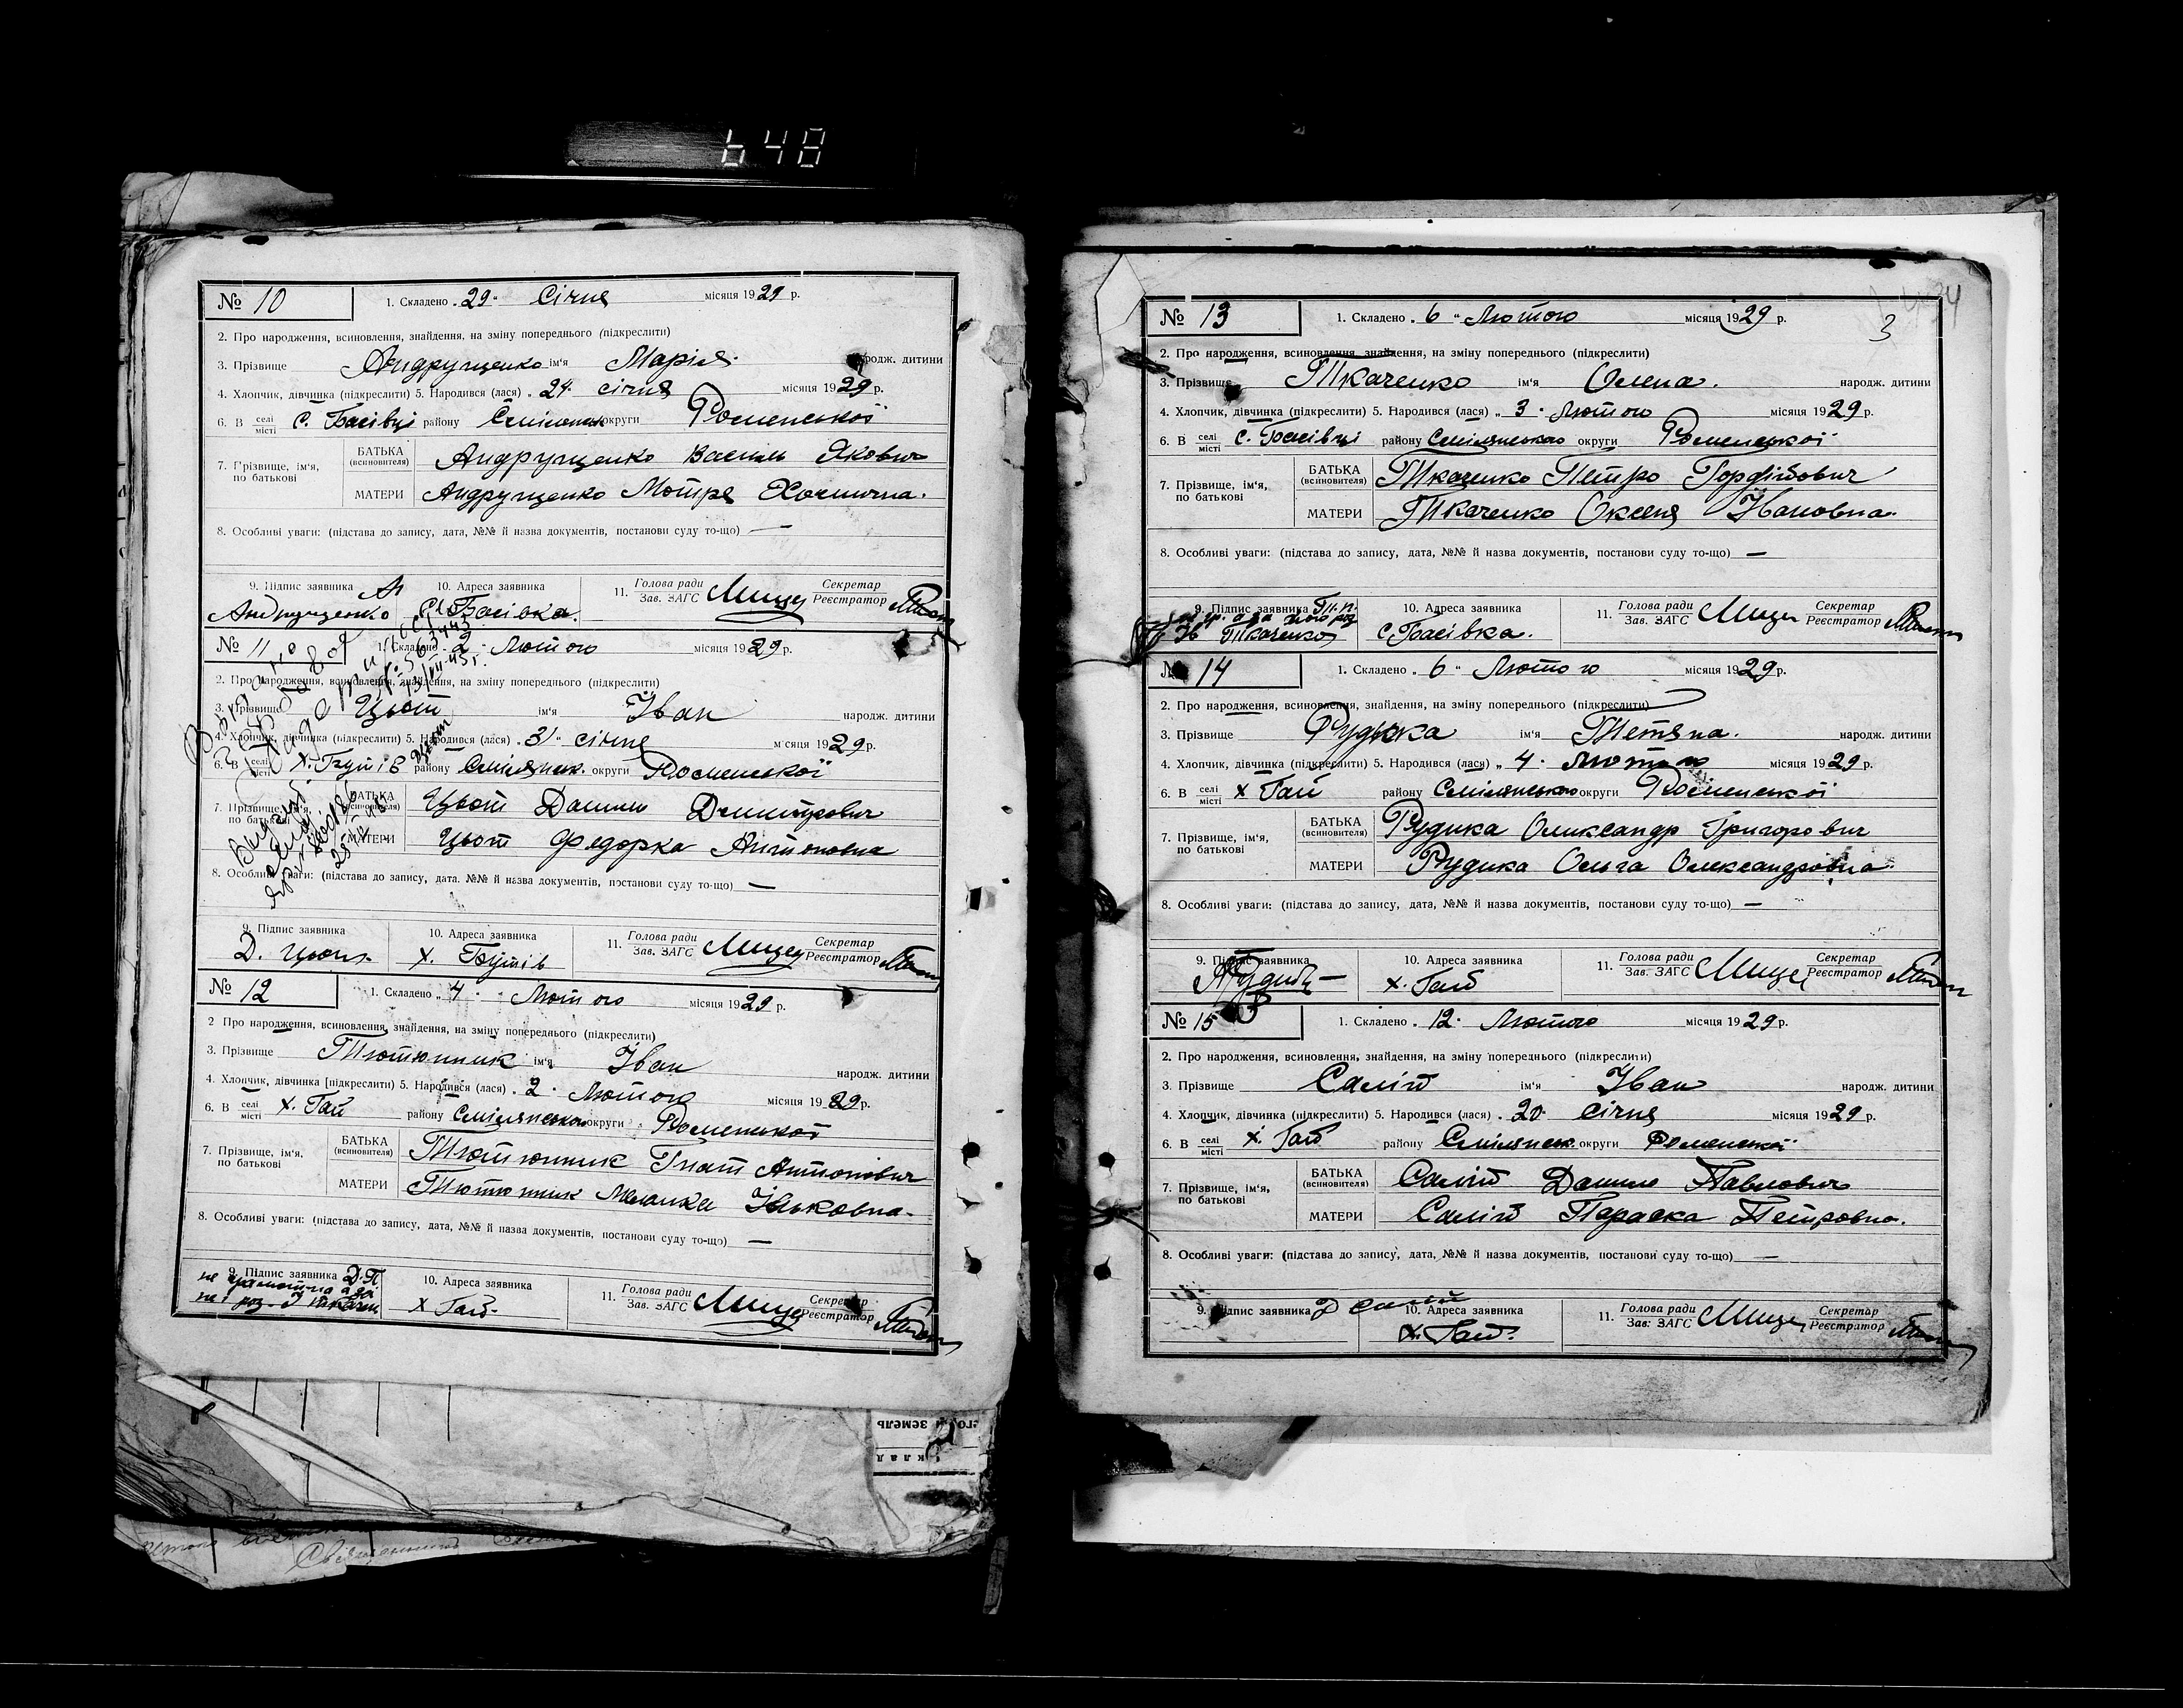 648
№ 10
1. Складено „29“ Січня місяця 1929 р.
2. Про народження, всиновлення, знайдення, на зміну попереднього (підкреслити)
3. Прізвище Андрущенко ім'я Марія народж. дитини
4. Хлопчик, дівчинка (підкреслити) 5. Народився (лася) „24“ січня місяця 1929 р.
6. В селі місті с. Басівці району округи Роменської
7. Прізвище, ім'я, по батькові
БАТЬКА (всиновителя) Андрущенко Василь Якович
МАТЕРИ Андрущенко Мотря
8. Особливі уваги: (підстава до запису, дата, №№ й назва документів, постанови суду то-що) —
9. Підпис заявника Андрущенко
10. Адреса заявника с. Басівка.
11. Голова ради Зав. ЗАГС Секретар Реєстратор
№ 11
1. Складено „2“ Лютого місяця 1929 р.
2. Про народження, всиновлення, знайдення, на зміну попереднього (підкреслити)
3. Прізвище Цьот ім'я Іван народж. дитини
4. Хлопчик, дівчинка (підкреслити) 5. Народився (лася) „31“ січня місяця 1929 р.
6. В селі місті х. Бутів району Смілянськ. округи Роменської
7. Прізвище, ім'я, по батькові
БАТЬКА (всиновителя) Цьот Данило Дмитрович
МАТЕРИ Цьот Федорка Антоновна
8. Особливі уваги: (підстава до запису, дата, №№ й назва документів, постанови суду то-що) —
9. Підпис заявника Д. Цьот
10. Адреса заявника х. Бутів
11. Голова ради Зав. ЗАГС Секретар Реєстратор
№ 12
1. Складено „4“ Лютого місяця 1929 р.
2 Про народження, всиновлення, знайдення, на зміну попереднього (підкреслити)
3. Прізвище Тютюнник ім'я Іван народж. дитини
4. Хлопчик, дівчинка (підкреслити) 5. Народився (лася) „2“ Лютого місяця 1929 р.
6. В селі місті х. Гай району Смілянського округи Роменської
7. Прізвище, ім'я, по батькові
БАТЬКА (всиновителя) Тютюнник Гнат Антонович
МАТЕРИ Тютюнник Меланка Ільковна
8. Особливі уваги: (підстава до запису, дата, №№ й назва документів, постанови суду то-що) —
9. Підпис заявника
10. Адреса заявника х Гай
11. Голова ради Зав. ЗАГС Секретар Реєстратор
3
№ 13
1. Складено „6“ Лютого місяця 1929 р.
2. Про народження, всиновлення, знайдення, на зміну попереднього (підкреслити)
3. Прізвище Ткаченко ім'я Олена народж. дитини
4. Хлопчик, дівчинка (підкреслити) 5. Народився (лася) „3“ Лютого місяця 1929 р.
6. В селі місті с. Басівці району Смілянського округи Роменської
7. Прізвище, ім'я, по батькові
БАТЬКА (всиновителя) Ткаченко Петро Гордійович
МАТЕРИ Ткаченко Оксеня Івановна
8. Особливі уваги: (підстава до запису, дата, №№ й назва документів, постанови суду то-що) —
9. Підпис заявника Ткаченко
10. Адреса заявника с Басівка.
11. Голова ради Зав. ЗАГС Секретар Реєстратор
№ 14
1. Складено „6“ Лютого місяця 1929 р.
2. Про народження, всиновлення, знайдення, на зміну попереднього (підкреслити)
3. Прізвище Рудика ім'я Тетяна народж. дитини
4. Хлопчик, дівчинка (підкреслити) 5. Народився (лася) „4“ Лютого місяця 1929 р.
6. В селі місті х Гай району Смілянського округи Роменської
7. Прізвище, ім'я, по батькові
БАТЬКА (всиновителя) Рудика Олександр Григорович
МАТЕРИ Рудика Ольга Олександровна
8. Особливі уваги: (підстава до запису, дата, №№ й назва документів, постанови суду то-що) —
9. Підпис заявника
10. Адреса заявника х. Гай
11. Голова ради Зав. ЗАГС Секретар Реєстратор
№ 15
1. Складено „12“ Лютого місяця 1929 р.
2. Про народження, всиновлення, знайдення, на зміну попереднього (підкреслити)
3. Прізвище Салій ім'я Іван народж. дитини
4. Хлопчик, дівчинка (підкреслити) 5. Народився (лася) „20“ січня місяця 1929 р.
6. В селі місті х. Гай району Смілянськ. округи Роменської
7. Прізвище, ім'я, по батькові
БАТЬКА (всиновителя) Салій Данило Павлович
МАТЕРИ Салій Параска Петровна.
8. Особливі уваги: (підстава до запису, дата, №№ й назва документів, постанови суду то-що) —
9. Підпис заявника Д Салій
10. Адреса заявника х. Гай.
11. Голова ради Зав. ЗАГС Секретар Реєстратор